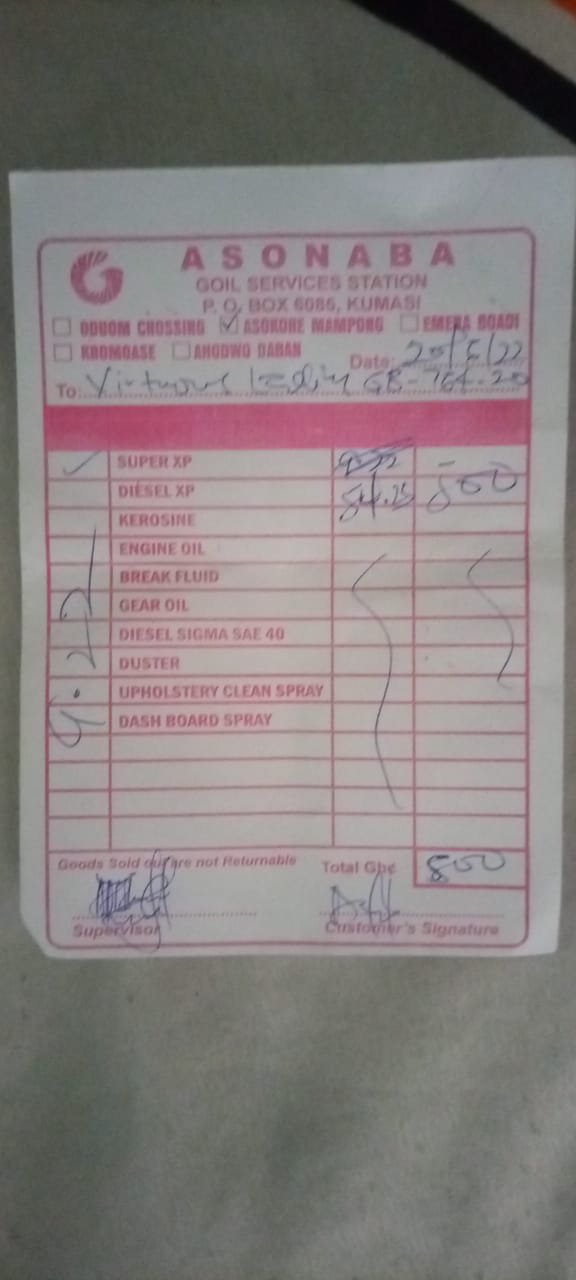 ASONABA
GOIL SERVICES STATION
P. O. BOX 6086, KUMASI
ODUOM CROSSING ✓ ASOKORE MAMPONG EMENA BOADI
KROMOASE AHODWO DABAN
Date: 20/5/22
To: Virtuous GR-764-20
✓ SUPER XP
DIESEL XP 500
KEROSINE
ENGINE OIL
BREAK FLUID
GEAR OIL
DIESEL SIGMA SAE 40
DUSTER
UPHOLSTERY CLEAN SPRAY
DASH BOARD SPRAY
9.22
Goods Sold out are not Returnable Total Gh¢ 500
Supervisor Customer's Signature